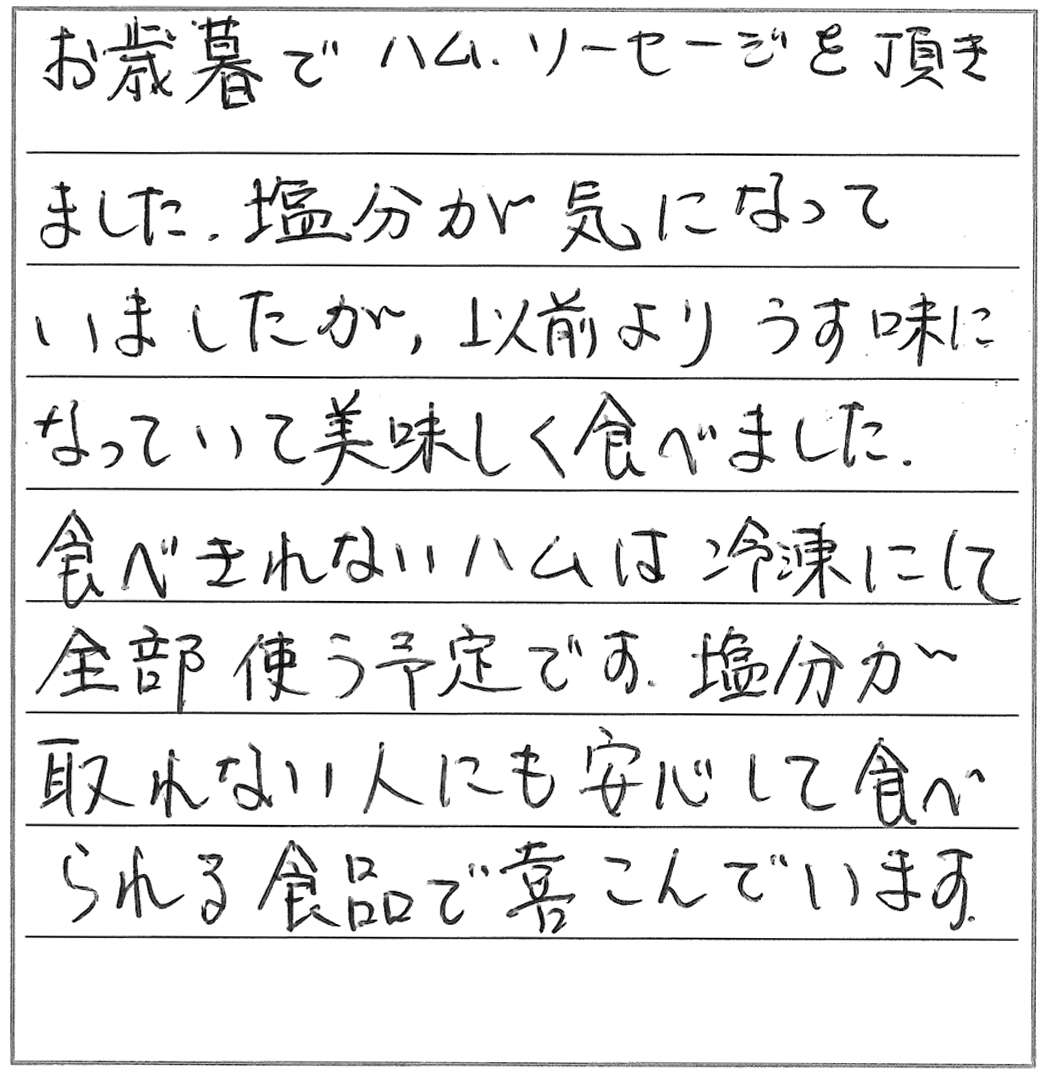 お歳暮でハム、ソーセージを頂き
ました。塩分が気になって
いましたが、以前よりうす味に
なっていて美味しく食べました。
食べきれないハムは冷凍にして
全部使う予定です。塩分が
取れない人にも安心して食べ
られる食品で喜こんでいます。